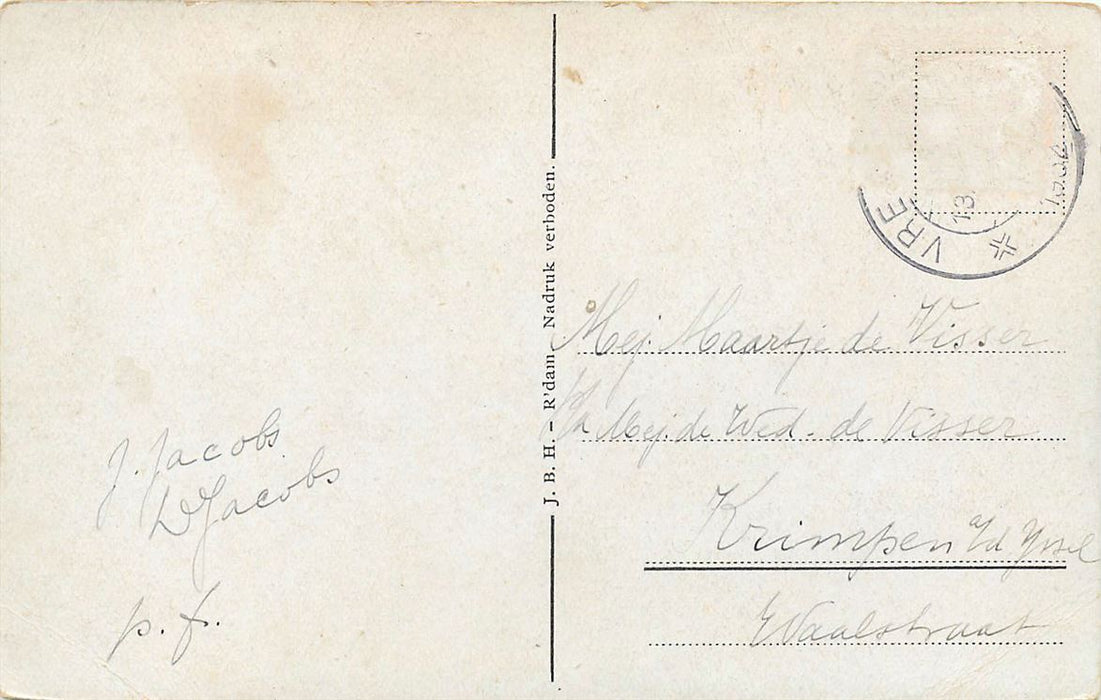 J. Jacobs
D Jacobs
p. f.
J. B. H. – R'dam. Nadruk verboden.
VRE
13.
Mej. Maartje de Visser
p/a Mej. de Wed. de Visser
Krimpen a/d Yssel
Waalstraat